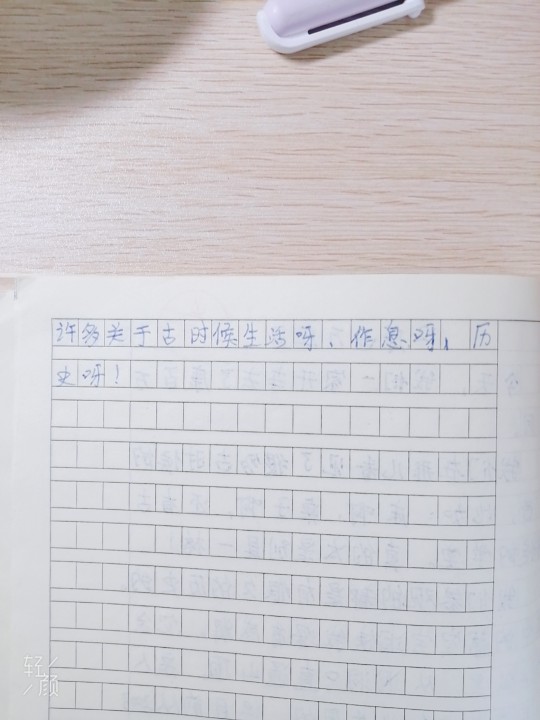 许多关于古时候生活呀、作息呀,历
史呀!
轻
颜